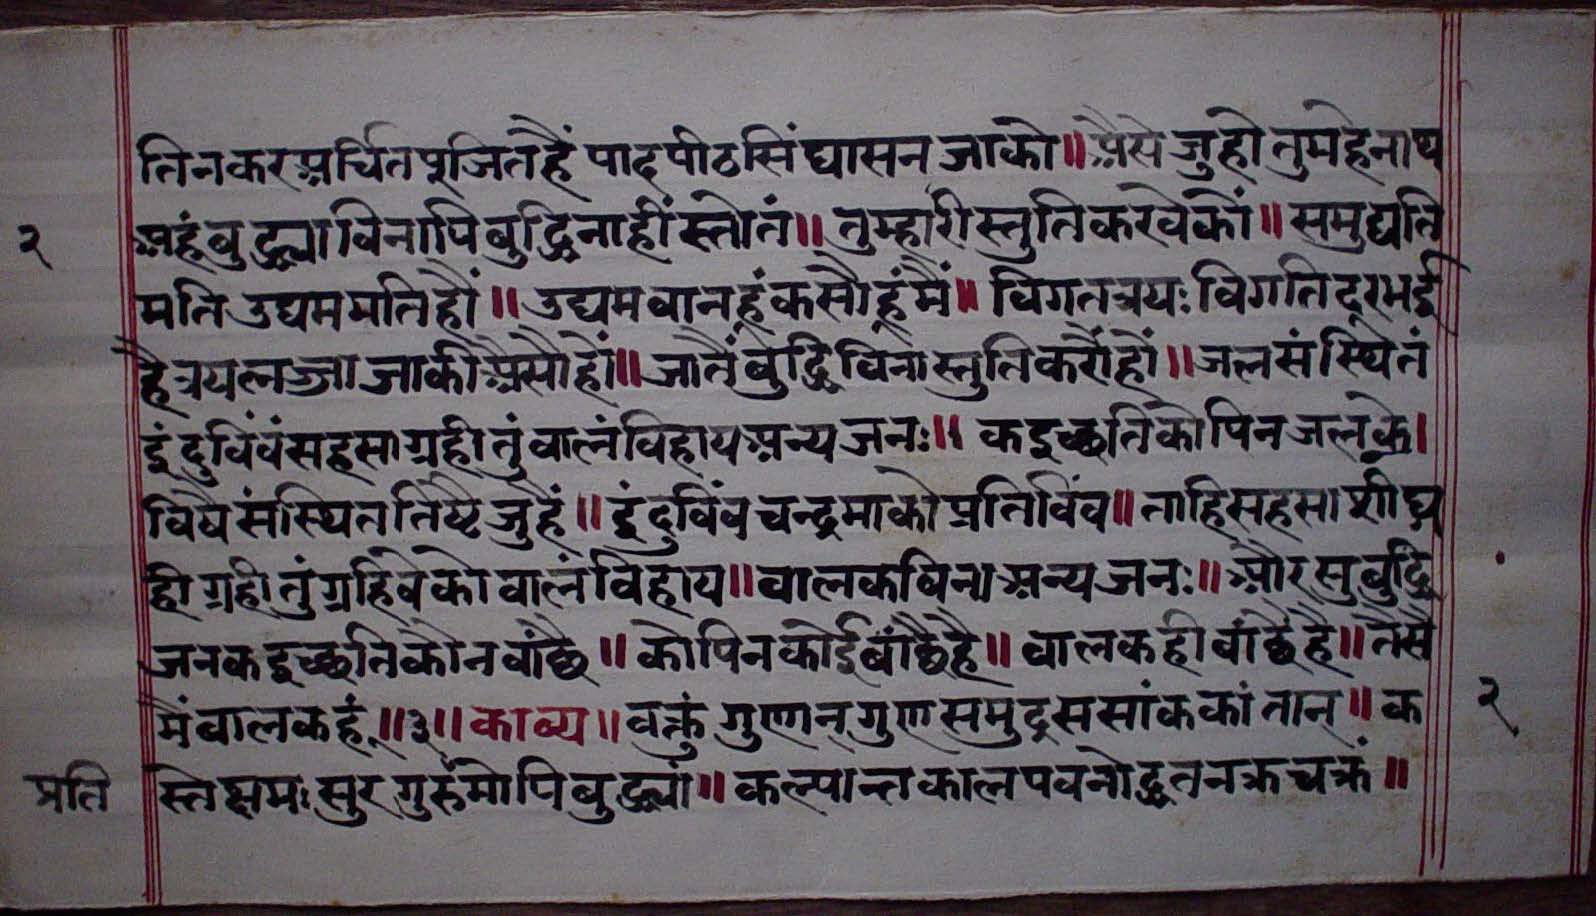 तिनकरअर्चितपूजितहैं पादपीठसिंघासन जाको॥ अैसे जुहो तुमहेनाथ
२ अहंबुद्ध्याविनापिबुद्धिनाहींस्तोतं॥ तुम्हारीस्तुतिकरवेकों॥ समुद्यति
मतिउद्यममतिहौं॥ उद्यमवानहूंकसौहूंमैं॥ विगतत्रयः विगतिदूरभई
हैत्रयलज्जाजाकीअैसौहों॥ जातैंबुद्धिविनास्तुतिकरौंहों॥ जलसंस्थितं
इंदुविंवंसहसाग्रहीतुंवालंविहायअन्यजनः॥ कइच्छतिकोपिनजलके।
विषैसंस्थिततिष्टैजुहैं॥ इंदुविंवचन्द्रमाकोप्रतिविंव॥ ताहिसहसाशीघ्र
हीग्रहीतुंग्रहिवेकोवालंविहाय॥ वालकविनाअन्यजनः॥ औरसुबुद्धि
जनकइच्छतिकौनवांछै॥ कोपिनकोईबांछैहै॥ वालकहीवांछैहै॥ तैसै
मैंवालकहूं॥३॥ काव्य॥ वक्तुंगुणान्गुणसमुद्रससांककांतान्॥ क २
प्रति स्तेक्षमःसुरगुरुमोपिबुद्ध्या॥ कल्पान्तकालपवनोद्धतनक्रचक्रं॥